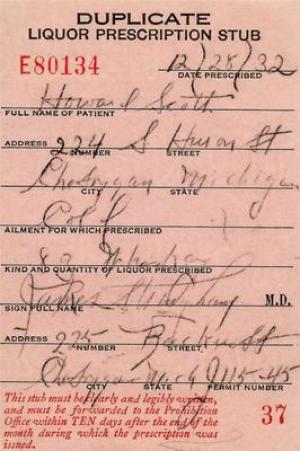 DUPLICATE
LIQUOR PRESCRIPTION STUB
E80134 12/28/32
DATE PRESCRIBED
Howard Scott
FULL NAME OF PATIENT
ADDRESS 224 S Huron St
NUMBER STREET
Cheboygan Michigan
CITY STATE
AILMENT FOR WHICH PRESCRIBED
KIND AND QUANTITY OF LIQUOR PRESCRIBED
M.D.
SIGN FULL NAME
ADDRESS 225 St
NUMBER STREET
CITY STATE PERMIT NUMBER
This stub must be clearly and legibly written,
and must be forwarded to the Prohibition
Office within TEN days after the end of the
month during which the prescription was
issued.
37